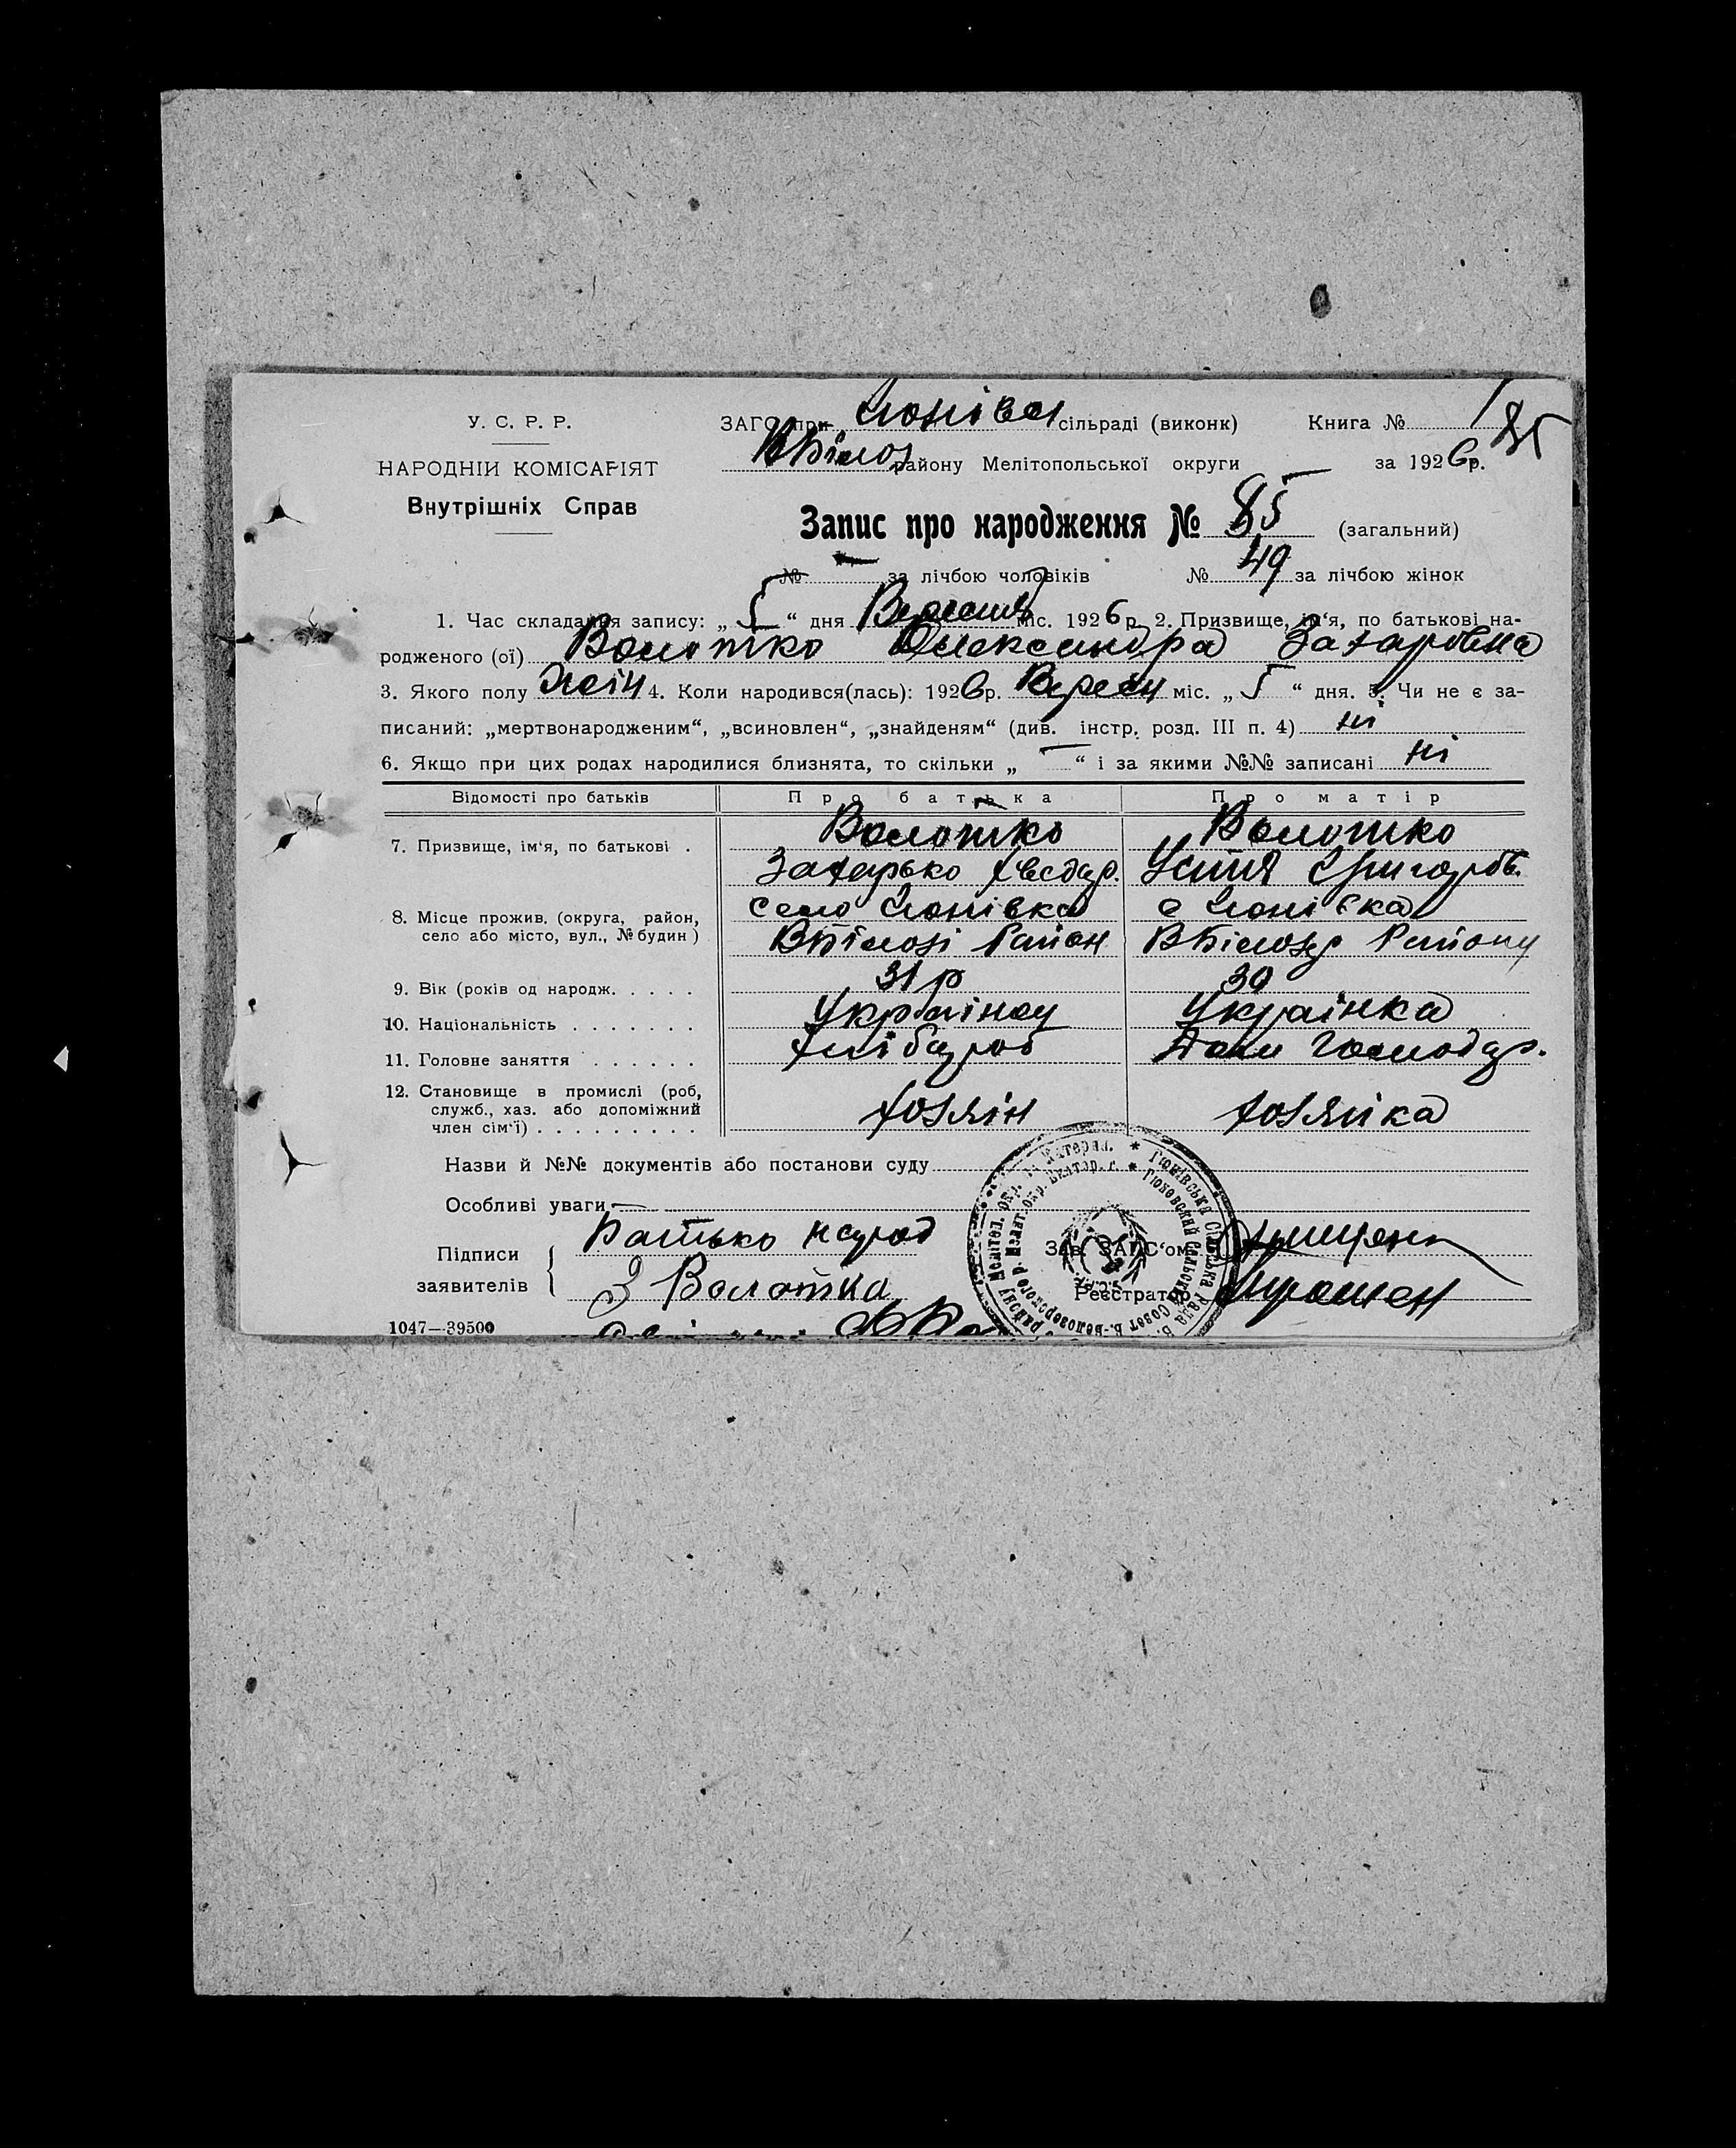 У. С. Р. Р.
НАРОДНІЙ КОМІСАРІЯТ
Внутрішніх Справ
ЗАГС при сільраді (виконк)
Книга № 1
85
ВБілоз району Мелітопольської округи
за 1926 р.
Запис про народження № 85 (загальний)
№ за лічбою чоловіків № 49 за лічбою жінок
1. Час складання запису: „5“ дня Вересня міс. 1926 р. 2. Призвище, ім‘я, по батькові на-
родженого (ої) Волотко Олександра Захаровна
3. Якого полу Жіін 4. Коли народився(лась): 1926 р. Вересн міс. „5“ дня. 5. Чи не є за-
писаний: „мертвонародженим“, „всиновлен“, „знайденям“ (див. інстр. розд. III п. 4) ні
6. Якщо при цих родах народилися близнята, то скільки „—“ і за якими №№ записані ні
Відомості про батьків
Про батька
Про матір
7. Призвище, ім‘я, по батькові .
Волотко
Захарько Хведор.
Волотко
Устя Григоров.
8. Місце прожив. (округа, район,
село або місто, вул., № будин)
село
ВБілозі Район
с
ВБілозер Району
9. Вік (років од народж. . . . .
31 р
30
10. Національність . . . . . . .
Українец
Українка
11. Головне заняття . . . . . .
Хлібороб
Дом Господар.
12. Становище в промислі (роб,
служб., хаз. або допоміжний
член сім‘ї) . . . . . . . . .
Хозяін
Хозяйка
Назви й №№ документів або постанови суду
Особливі уваги —
Підписи
заявителів
Батько народ
З Волотка
Зав. ЗАГС‘ом
Реєстратор
1047—39500